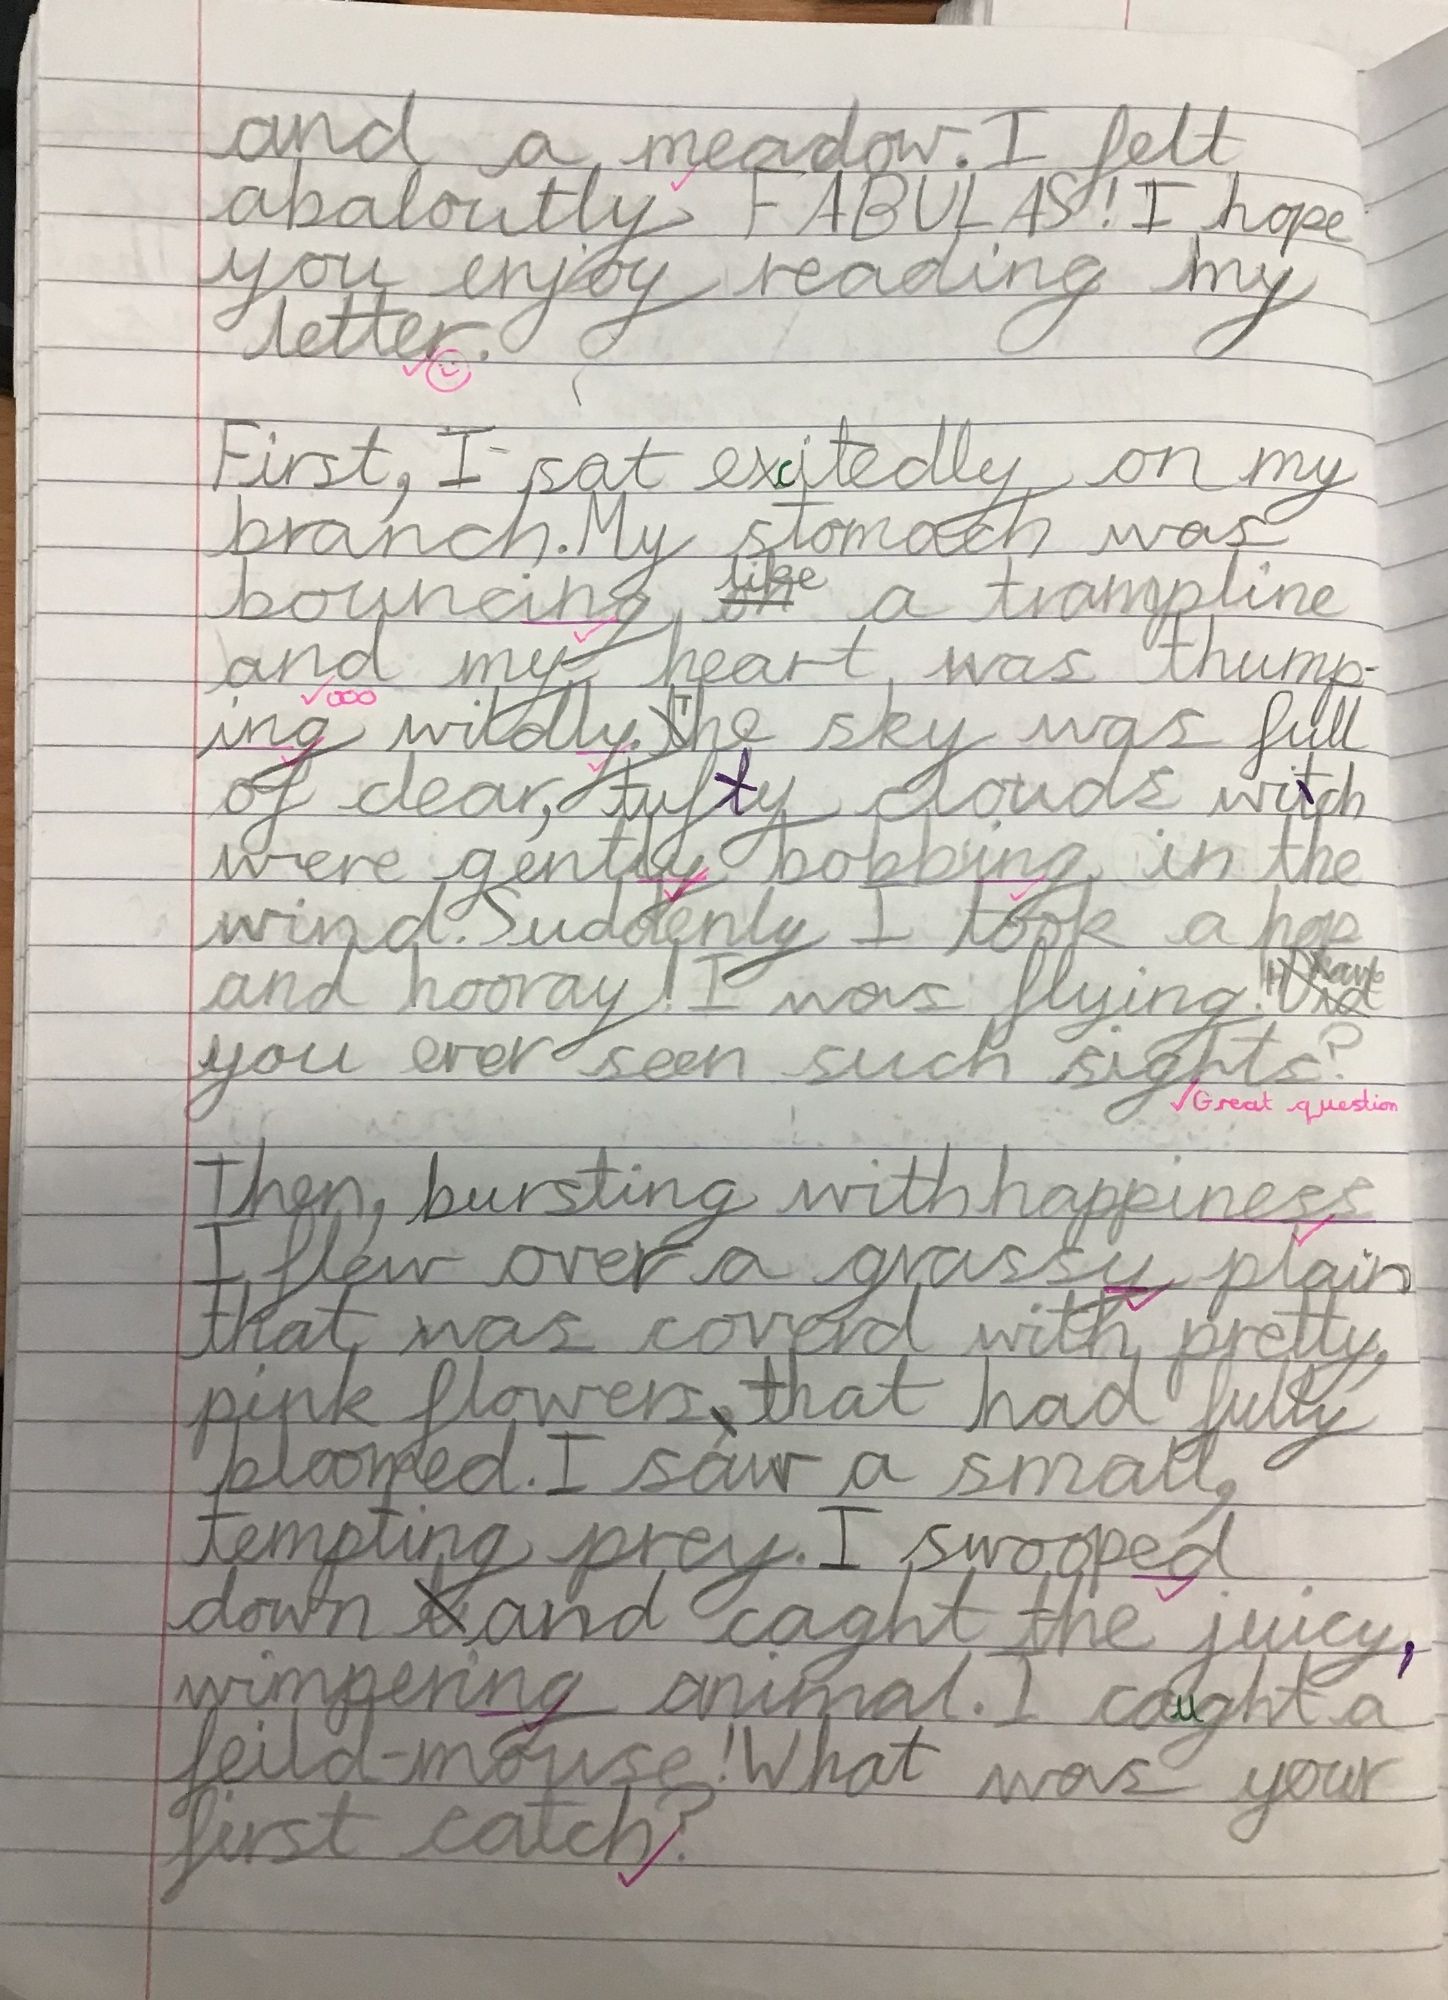 and a meadow. I felt
abaloutly FABULAS! I hope
you enjoy reading my
letter.
First, I sat excitedly on my
branch. My stomach was
bouncing like a trampline
and my heart was thump-
ooo
ing wildly. The sky was full
of clear, tufty clouds witch
were gently bobbing in the
wind. Suddenly I took a hop
and hooray! I was flying! Have
you ever seen such sights?
Great question
Then, bursting with happiness
I flew over a grassy plain
that was coverd with pretty,
pink flowers, that had fully
bloomed. I saw a small,
tempting prey. I swooped
down and caght the juicy,
wimpering animal. I caught a
feild-mouse! What was your
first catch?